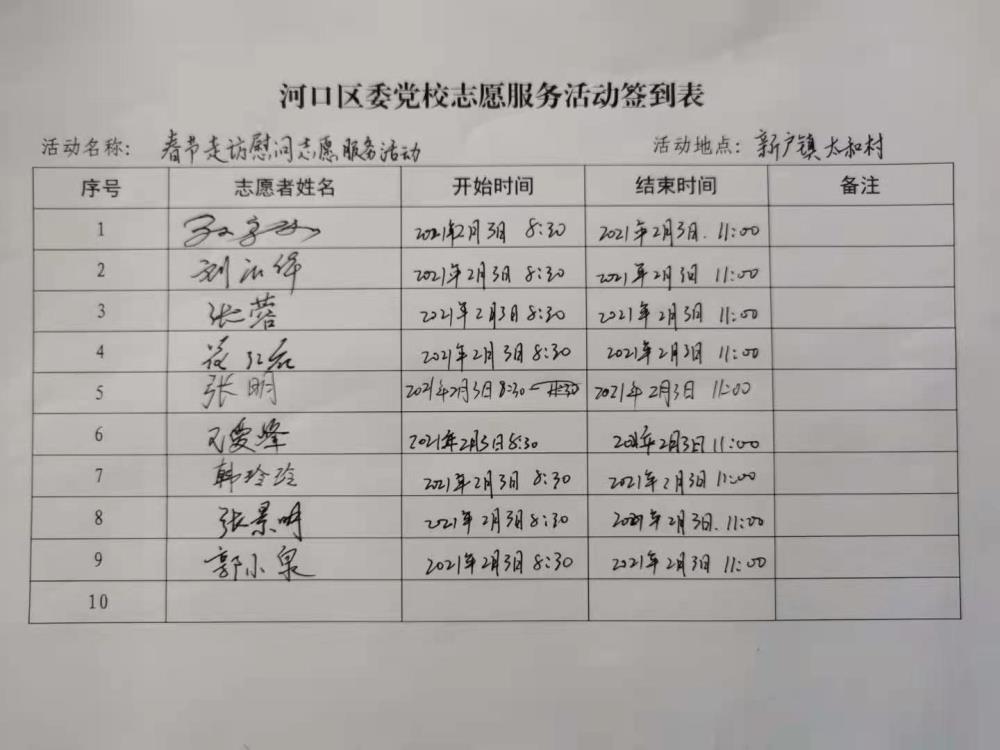 河口区委党校志愿服务活动签到表
活动名称: 春节走访慰问志愿服务活动 活动地点: 新户镇太和村
序号 志愿者姓名 开始时间 结束时间 备注
1 2021年2月3日 8:30 2021年2月3日. 11:00
2 刘 2021年2月3日 8:30 2021年2月3日 11:00
3 张蓉 2021年2月3日 8:30 2021年2月3日 11:00
4 2021年2月3日 8:30 2021年2月3日 11:00
5 张明 2021年2月3日 8:30 2021年2月3日 11:00
6 2021年2月3日 8:30 2021年2月3日 11:00
7 韩玲玲 2021年2月3日 8:30 2021年2月3日 11:00
8 张景明 2021年2月3日 8:30 2021年2月3日. 11:00
9 郭小泉 2021年2月3日 8:30 2021年2月3日 11:00
10